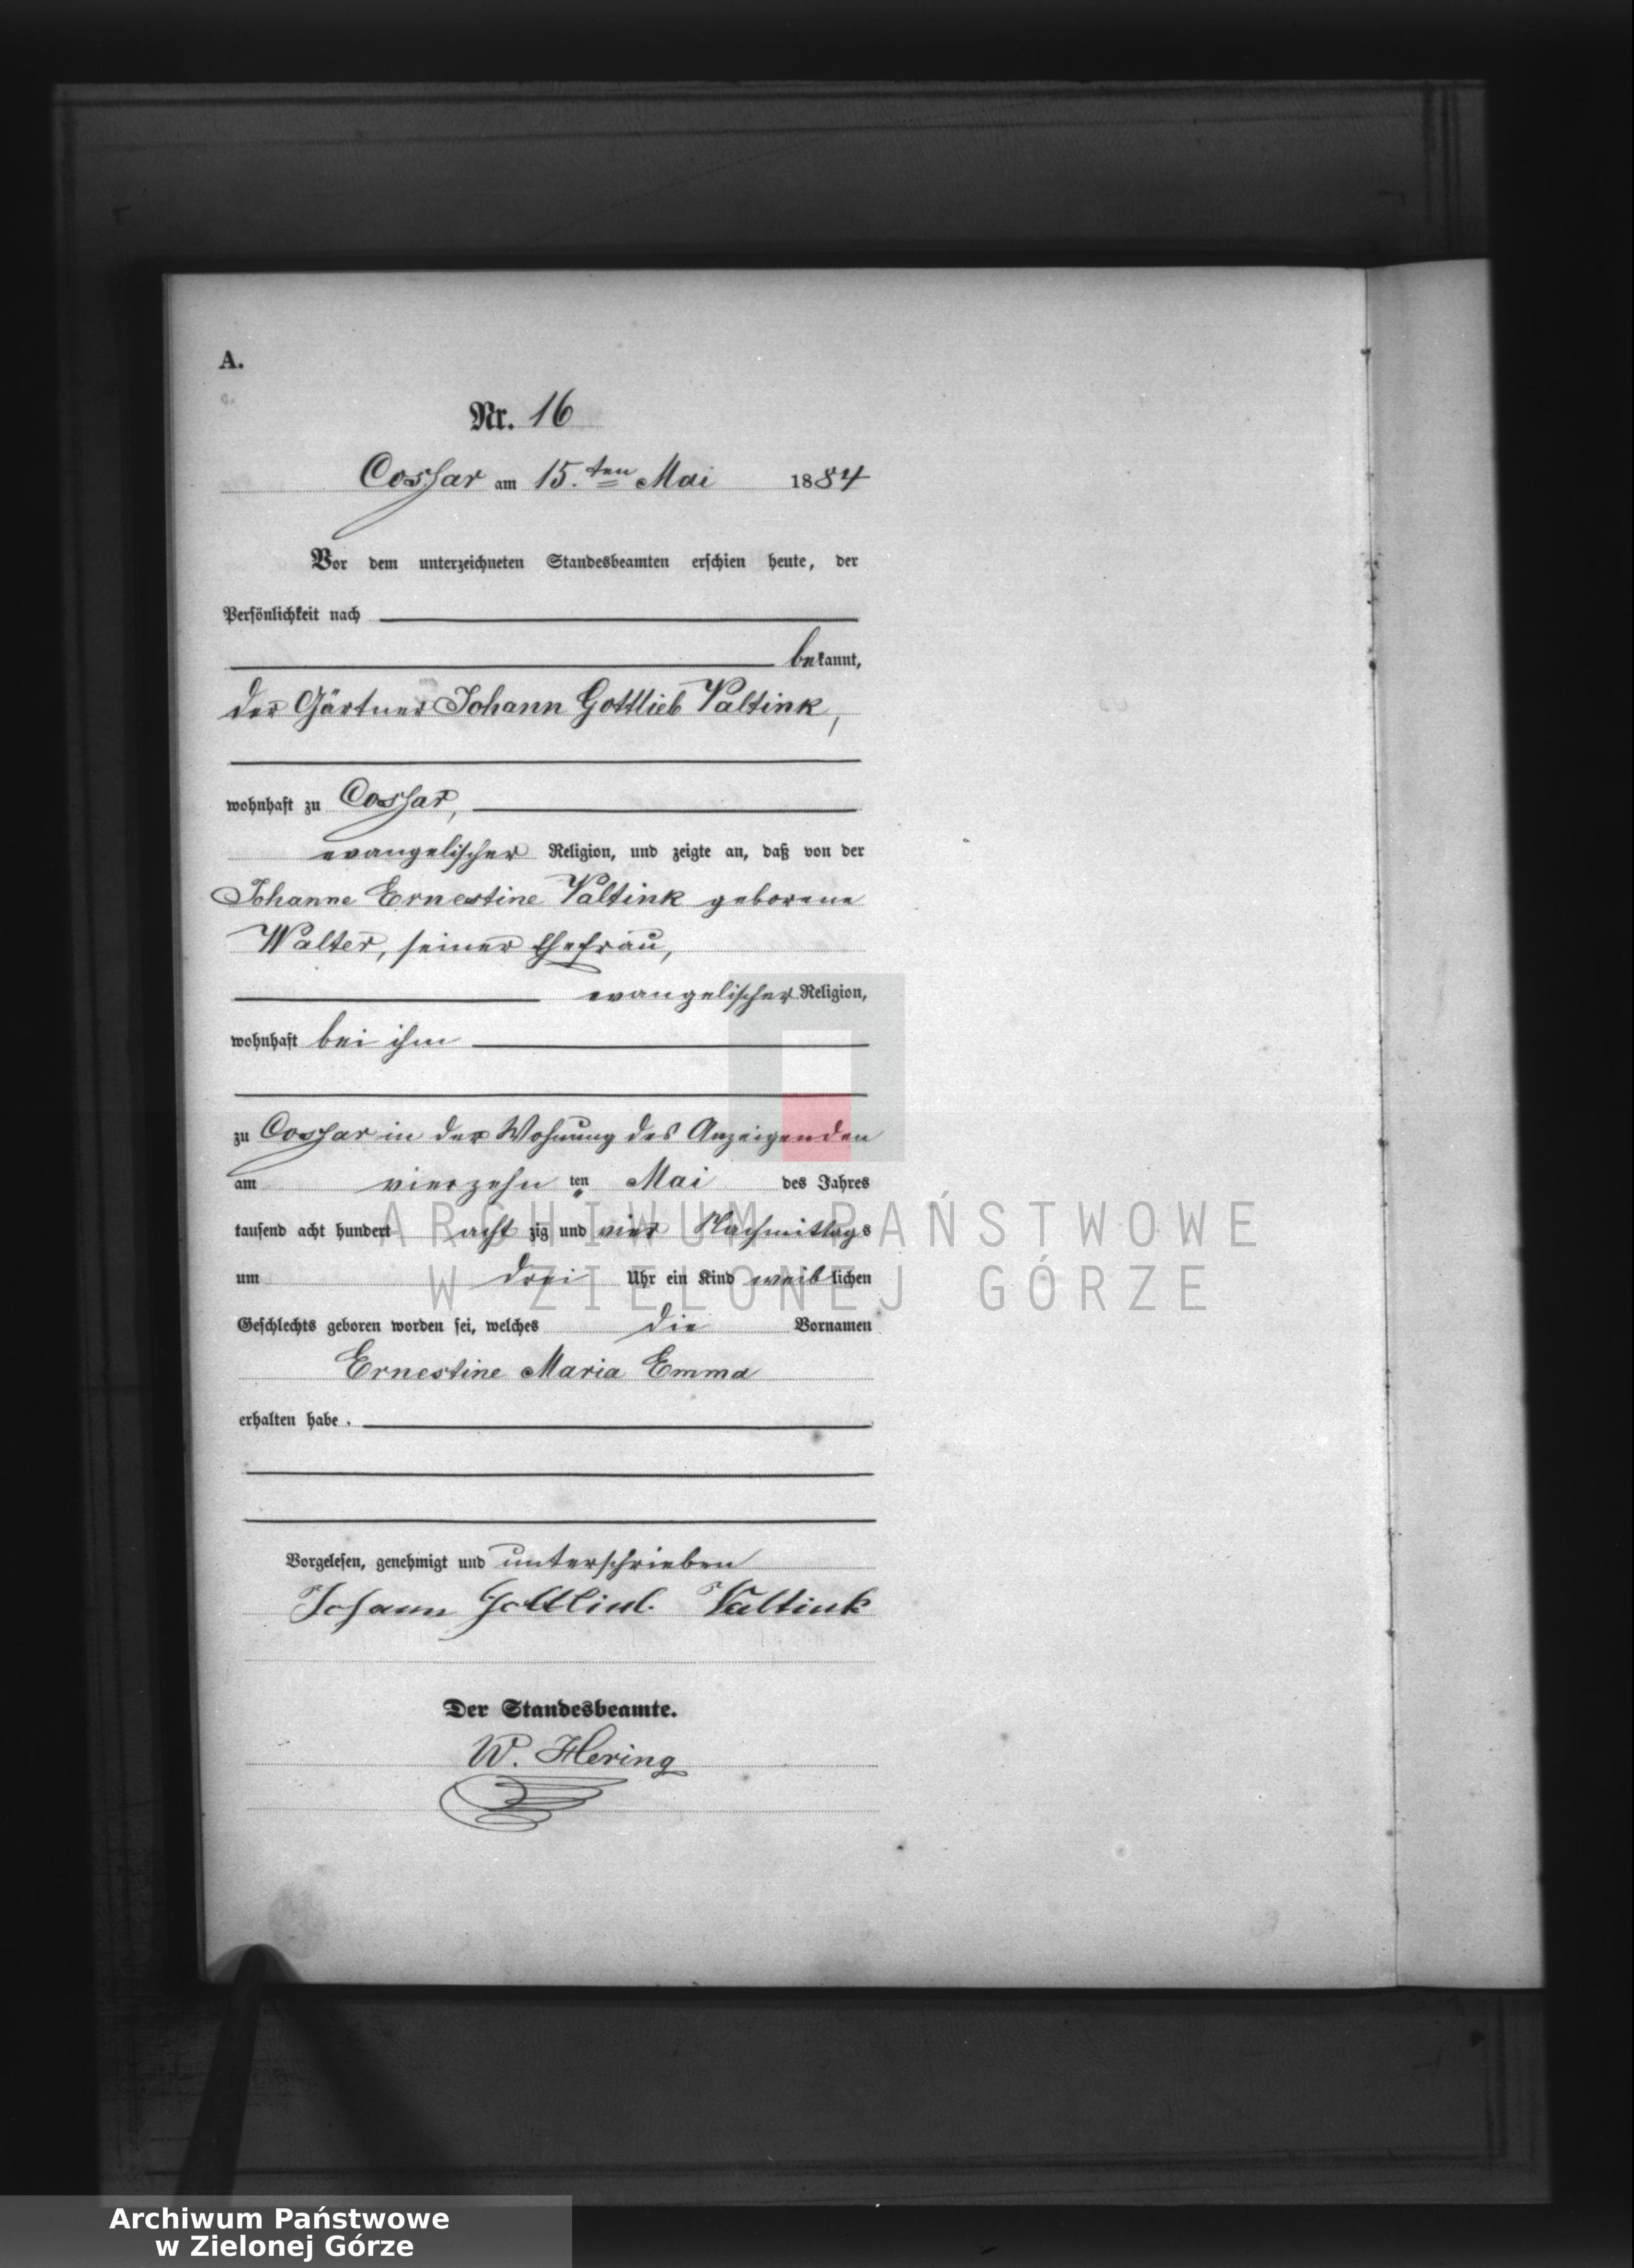 A.
Nr. 16
Cossar am 15.ten Mai 1884
Vor dem unterzeichneten Standesbeamten erschien heute, der
Persönlichkeit nach
bekannt,
der Gärtner Johann Gottlieb Valtink,
wohnhaft zu Cossar,
evangelischer Religion, und zeigte an, daß von der
Johanne Ernestine Valtink geborene
Walter, seiner Ehefrau,
evangelischer Religion,
wohnhaft bei ihm
zu Cossar in der Wohnung des Anzeigenden
am vierzehn ten Mai des Jahres
tausend acht hundert acht zig und vier Nachmittags
um drei Uhr ein Kind weiblichen
Geschlechts geboren worden sei, welches die Vornamen
Ernestine Maria Emma
erhalten habe.
Vorgelesen, genehmigt und unterschrieben
Johann Gottlieb Valtink
Der Standesbeamte.
W. Hering
ARCHIWUM PAŃSTWOWE
W ZIELONEJ GÓRZE
Archiwum Państwowe
w Zielonej Górze